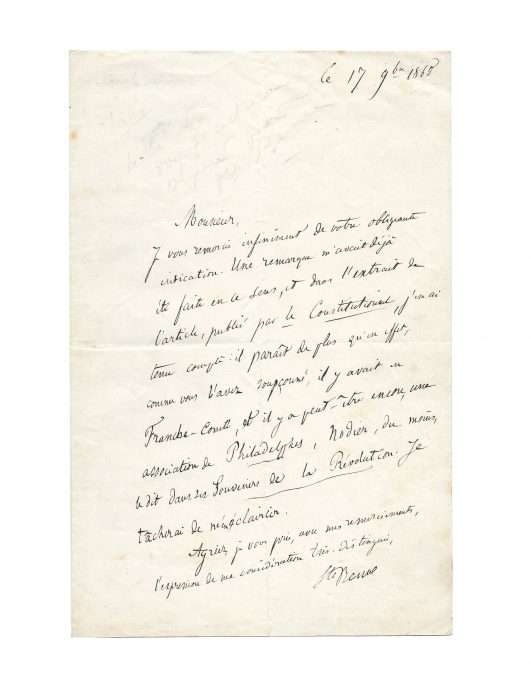 le 17 9bre 1865
Monsieur,
Je vous remercie infiniment de votre obligeante
indication. Une remarque m'avait déjà
été faite en ce sens, et dans l'extrait de
l'article, publié par le Constitutionnel, j'en ai
tenu compte : il paraît de plus qu'en effet,
comme vous l'avez soupçonné, il y avait en
Franche-Comté, et il y a peut-être encore, une
association de Philadelphes, Nodier, du moins,
le dit dans ses Souvenirs de la Révolution. Je
tâcherai de m'en éclaircir.
Agréez, je vous prie, avec mes remerciements,
l'expression de ma considération très-distinguée,
Ste Beuve